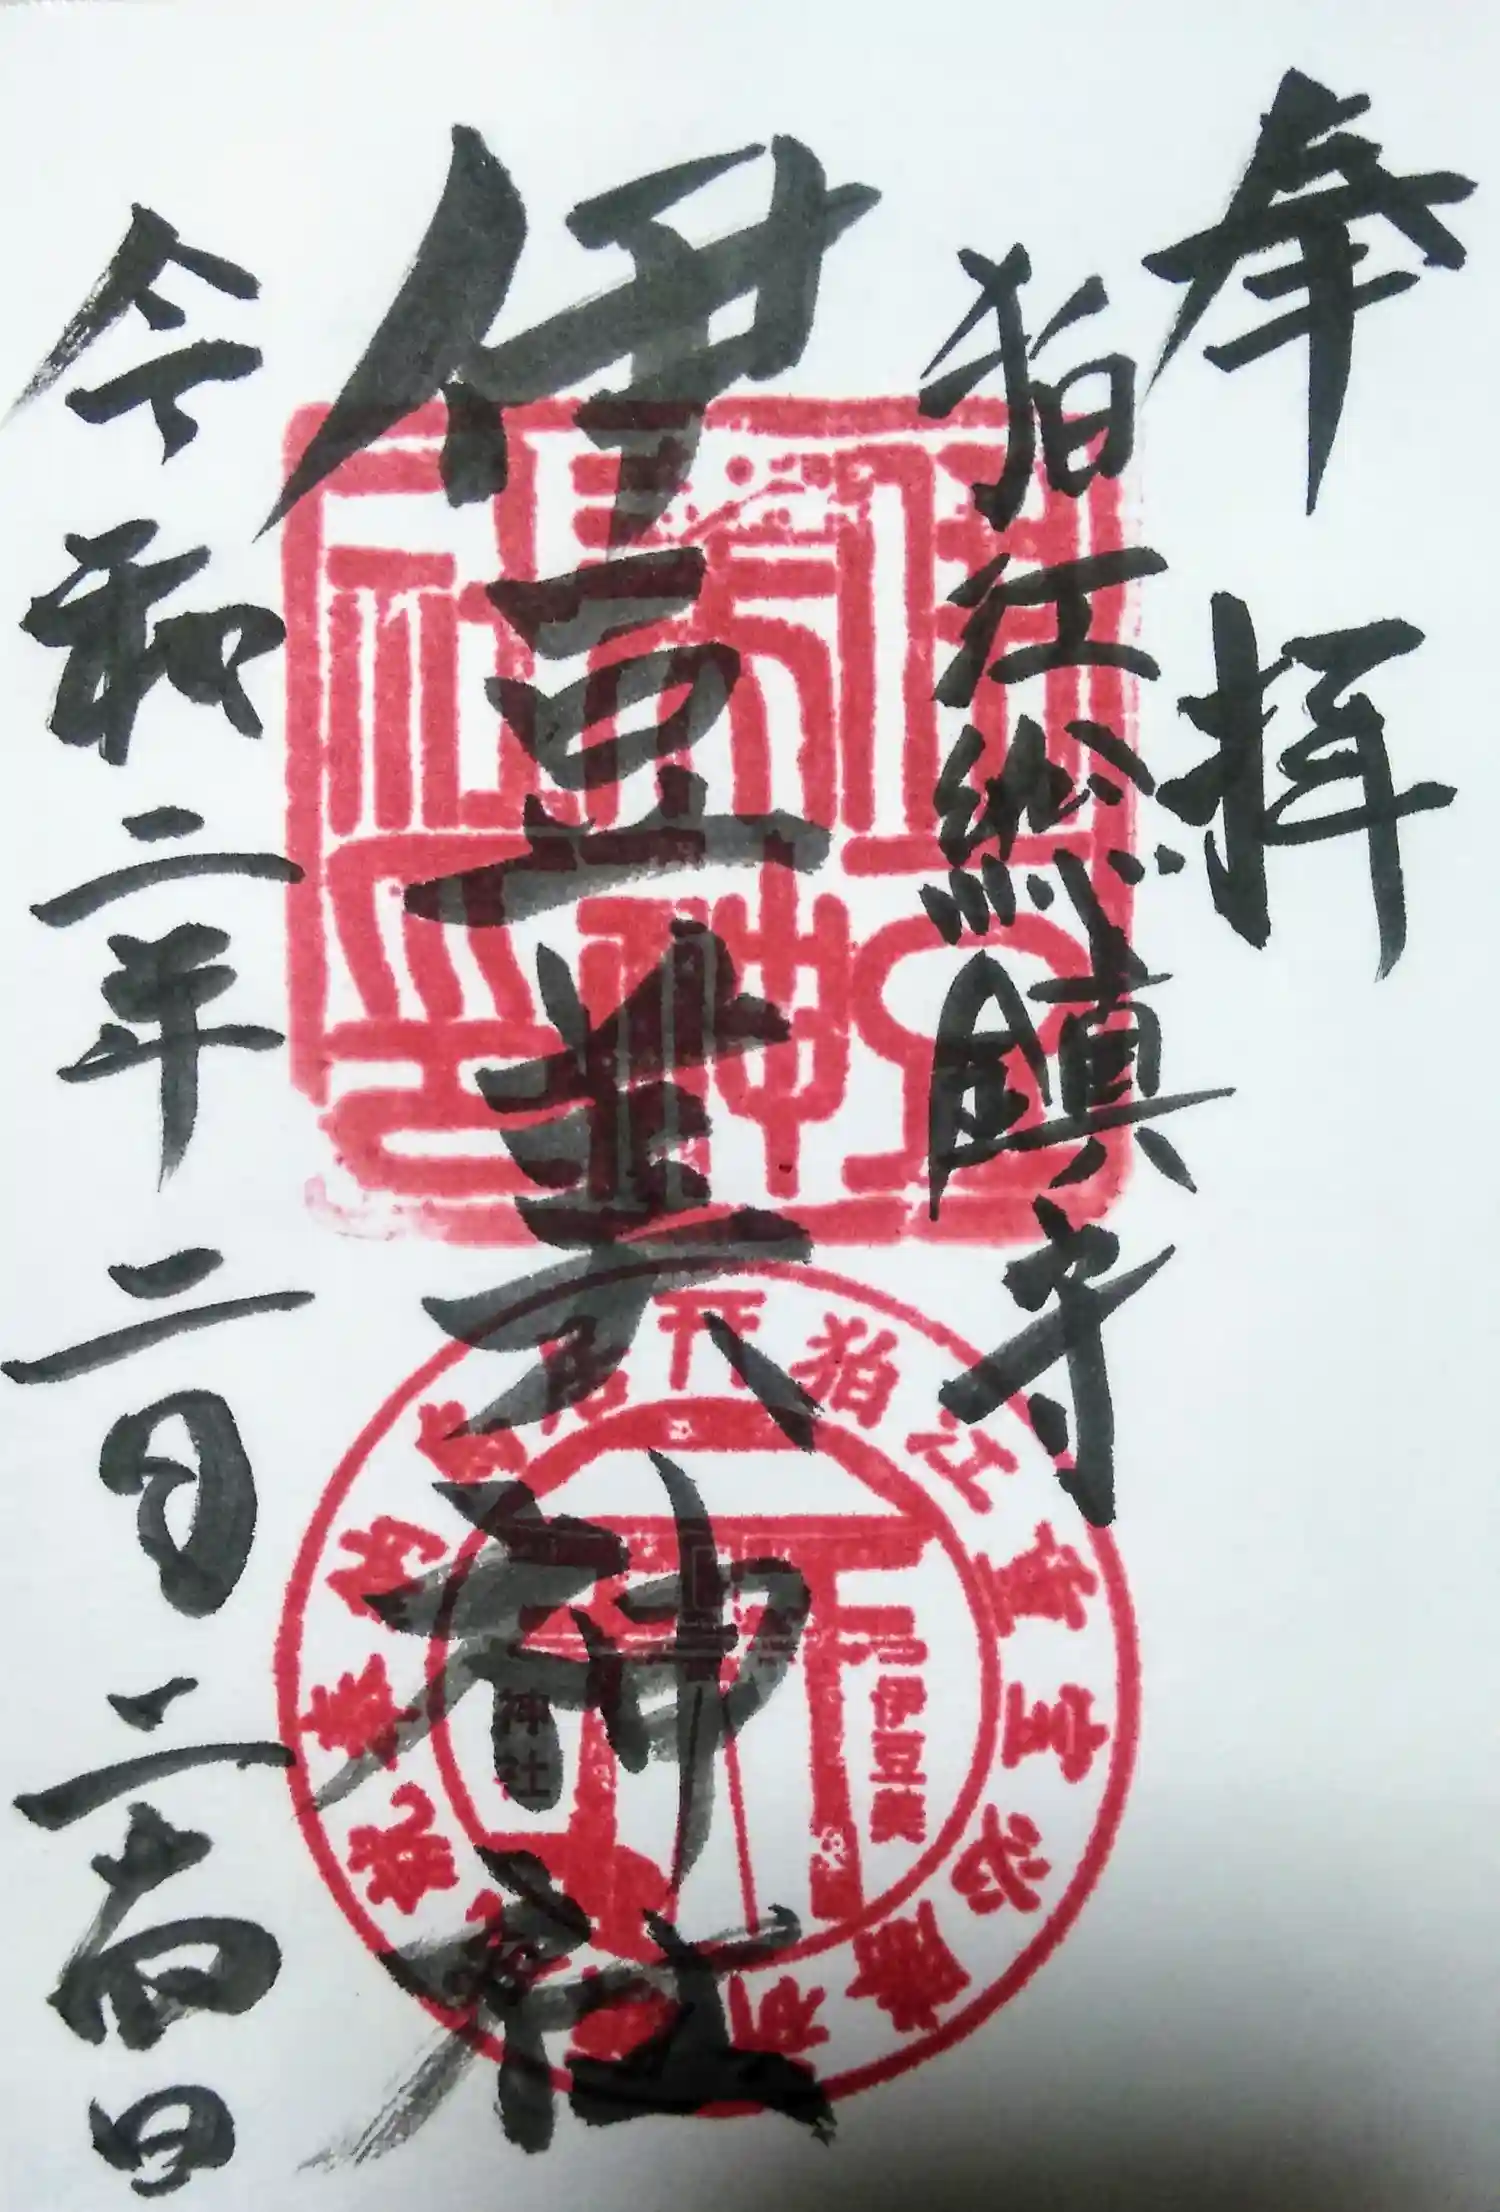 奉拝
狛江総鎮守
伊豆美神社
令和二年二月二十四日
伊豆美神社印
伊豆美
神社